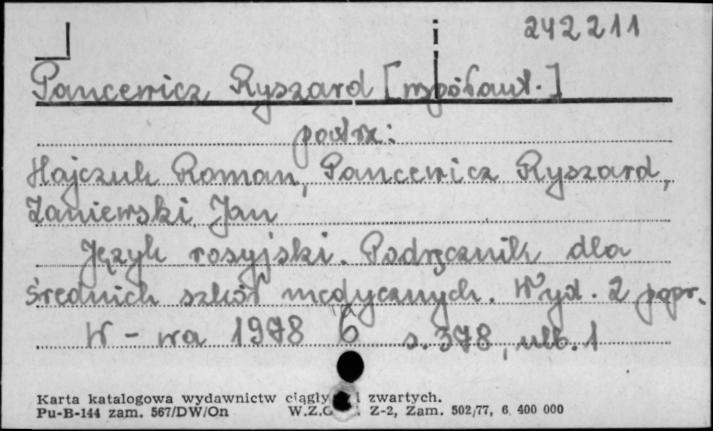 242211
Pancewicz Ryszard [współaut.]
patrz:
Hajczuk Roman, Pancewicz Ryszard,
Zaniewski Jan
Język rosyjski. Podręcznik dla
średnich szkół medycznych. Wyd. 2 popr.
W-wa 1978 6 s. 378, nlb. 1
Karta katalogowa wydawnictw ciągły i zwartych.
Pu-B-144 zam. 567/DW/On W.Z.G. Z-2, Zam. 502/77, 6 400 000